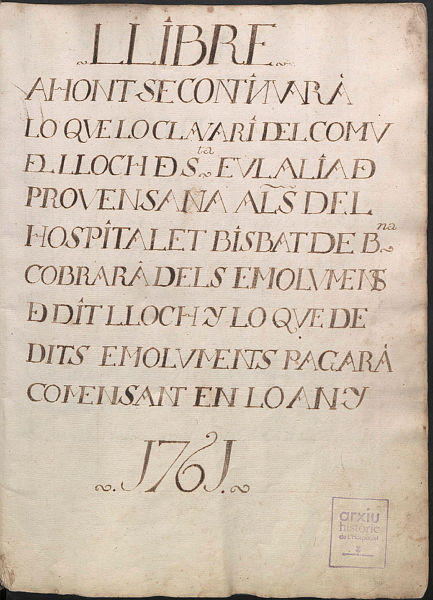 LLIBRE
AHONT SE CONTINUARÁ
LO QUE LO CLAVARI DEL COMU
DEL LLOCH DE S.ta EULALIA DE
PROVENSANA ALS̃ DEL
HOSPITALET BISBAT DE B.na
COBRARÁ DELS EMOLUMENS
DE DIT LLOCH Y LO QUE DE
DITS EMOLUMENTS PAGARÁ
COMENSANT EN LO ANY
1761.
arxiu
històric
de L'Hospitalet